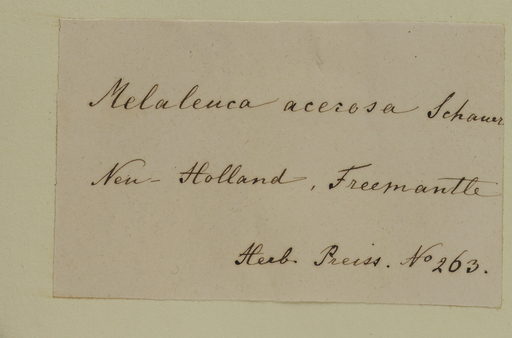 Melaleuca acerosa Schauer
Neu-Holland, Freemantle
Herb. Preiss. No 263.